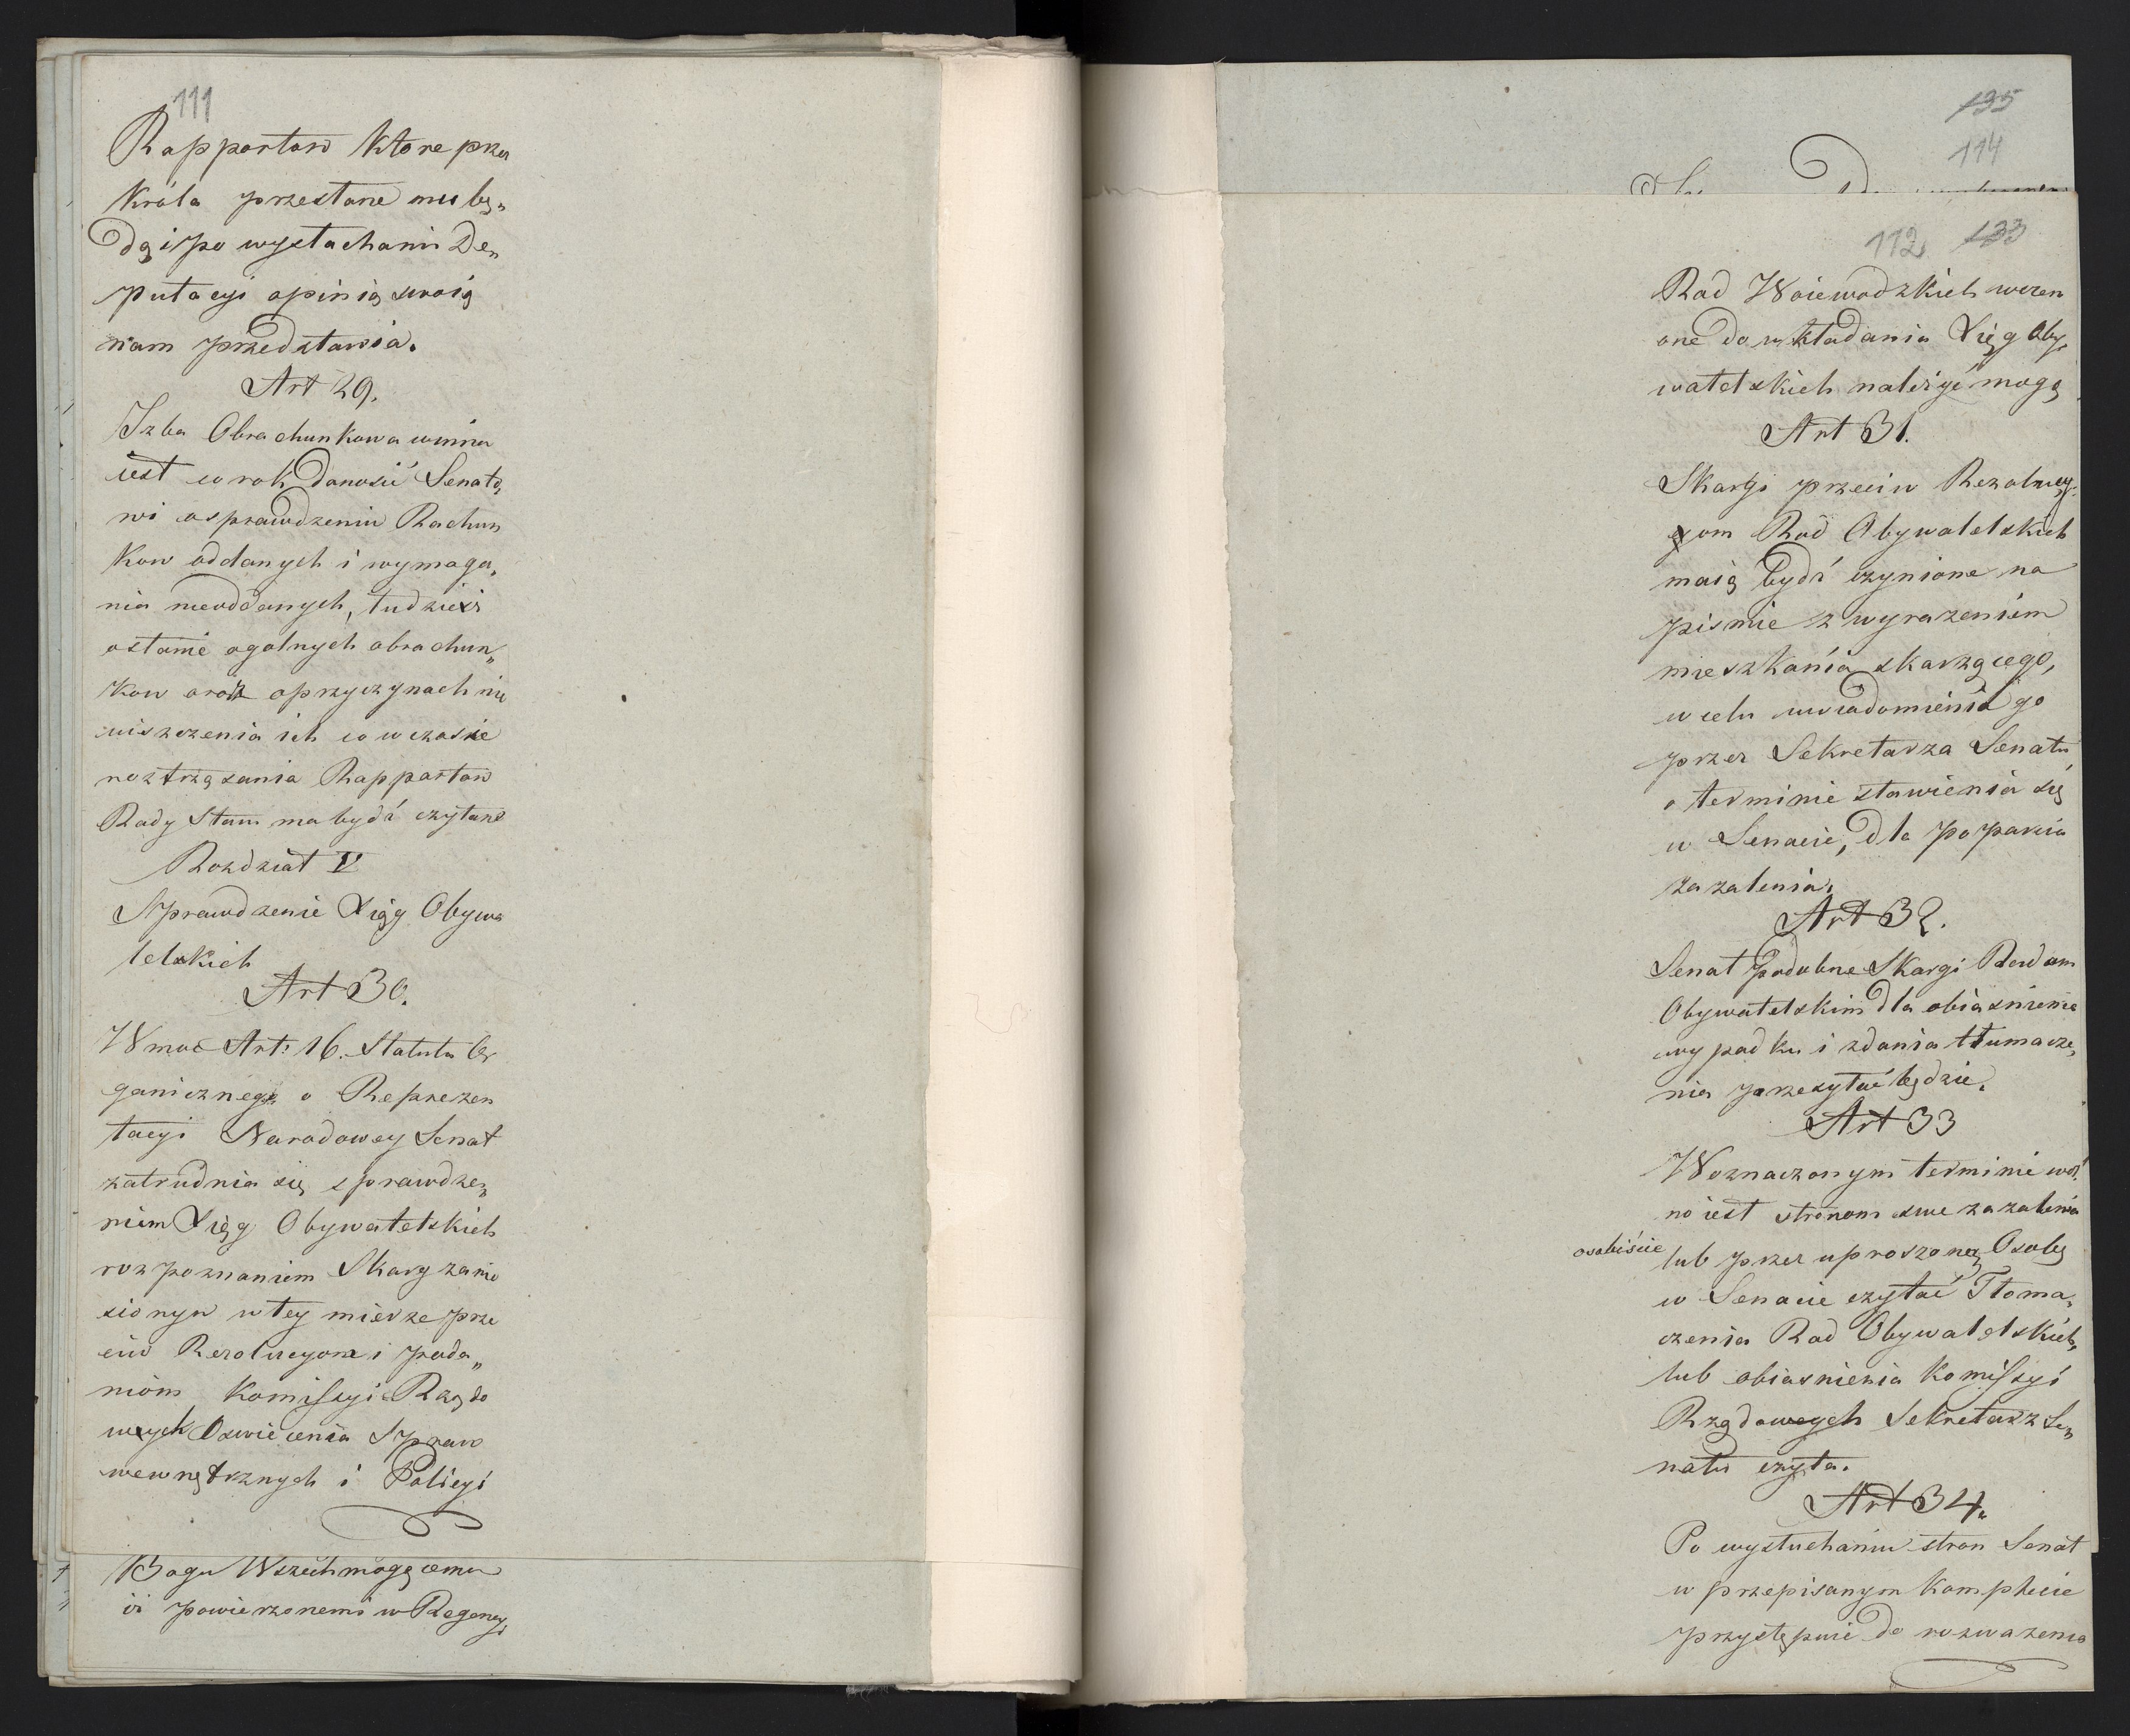 111
Rapportow ktore przez
Króla przesłane mu bę„
dą i po wysłuchaniu De„
putacyi opinią swoią
nam przedstawia.
Art 29.
Izba Obrachunkowa winna
iest co rok donosić Senato„
wi o sprawdzeniu Rachun
kow oddanych i wymaga„
nia nieoddanych, tudzież
ostanie ogolnych obrachun„
kow oraz o przyczynach nie
uiszczenia ich co w czasie
roztrząsania Rapportow
Rady Stanu ma bydź czytane
Rozdział V
Sprawdzenie Xiąg Obywa
telskich
Art 30.
W moc Art: 16. Statutu Or
ganicznego o Reprezen
tacyi Narodowey Senat
zatrudnia się sprawdze„
niem Xiąg Obywatelskich
rozpoznaniem Skarg zanie
sionym w tey mierze prze
ciw Rezolucyom i poda„
niom Komissyi Rządo
wych Oswiecenia Spraw
wewnętrznych i Policyi
Bogu Wszechmogącemu
i powierzonemi w Regency
135
114
112 133
Rad Woiewodzkich wzen
one do układania Xiąg Oby„
watelskich należyć mogą
Art 31.
Skargi przeciw Rezolucy„
yom Rad Obywatelskich
maią bydź czynione na
pismie z wyrazeniem
mieszkania skarzącego,
w celu uwiadomienia go
przez Sekretarza Senatu
o terminie stawienia się
w Senacie, dla poparcia
zazalenia.
Art 32.
Senat podobne Skargi Radom
Obywatelskim dla obiasnienia
wypadku i zdania tłumacze„
nia przesyłać będzie.
Art 33
W oznaczonym terminie wol
no iest stronom swe zazalenia
osobiście lub przez uproszoną Osobę
w Senacie czytać Tłoma„
czenia Rad Obywatelskich,
lub obiasnienia Komissyi
Rządowych Sekretarz Se„
natu czyta.
Art 34.
Po wysłuchaniu stron Senat
w przepisanym komplecie
przystępuie do rozwazenia